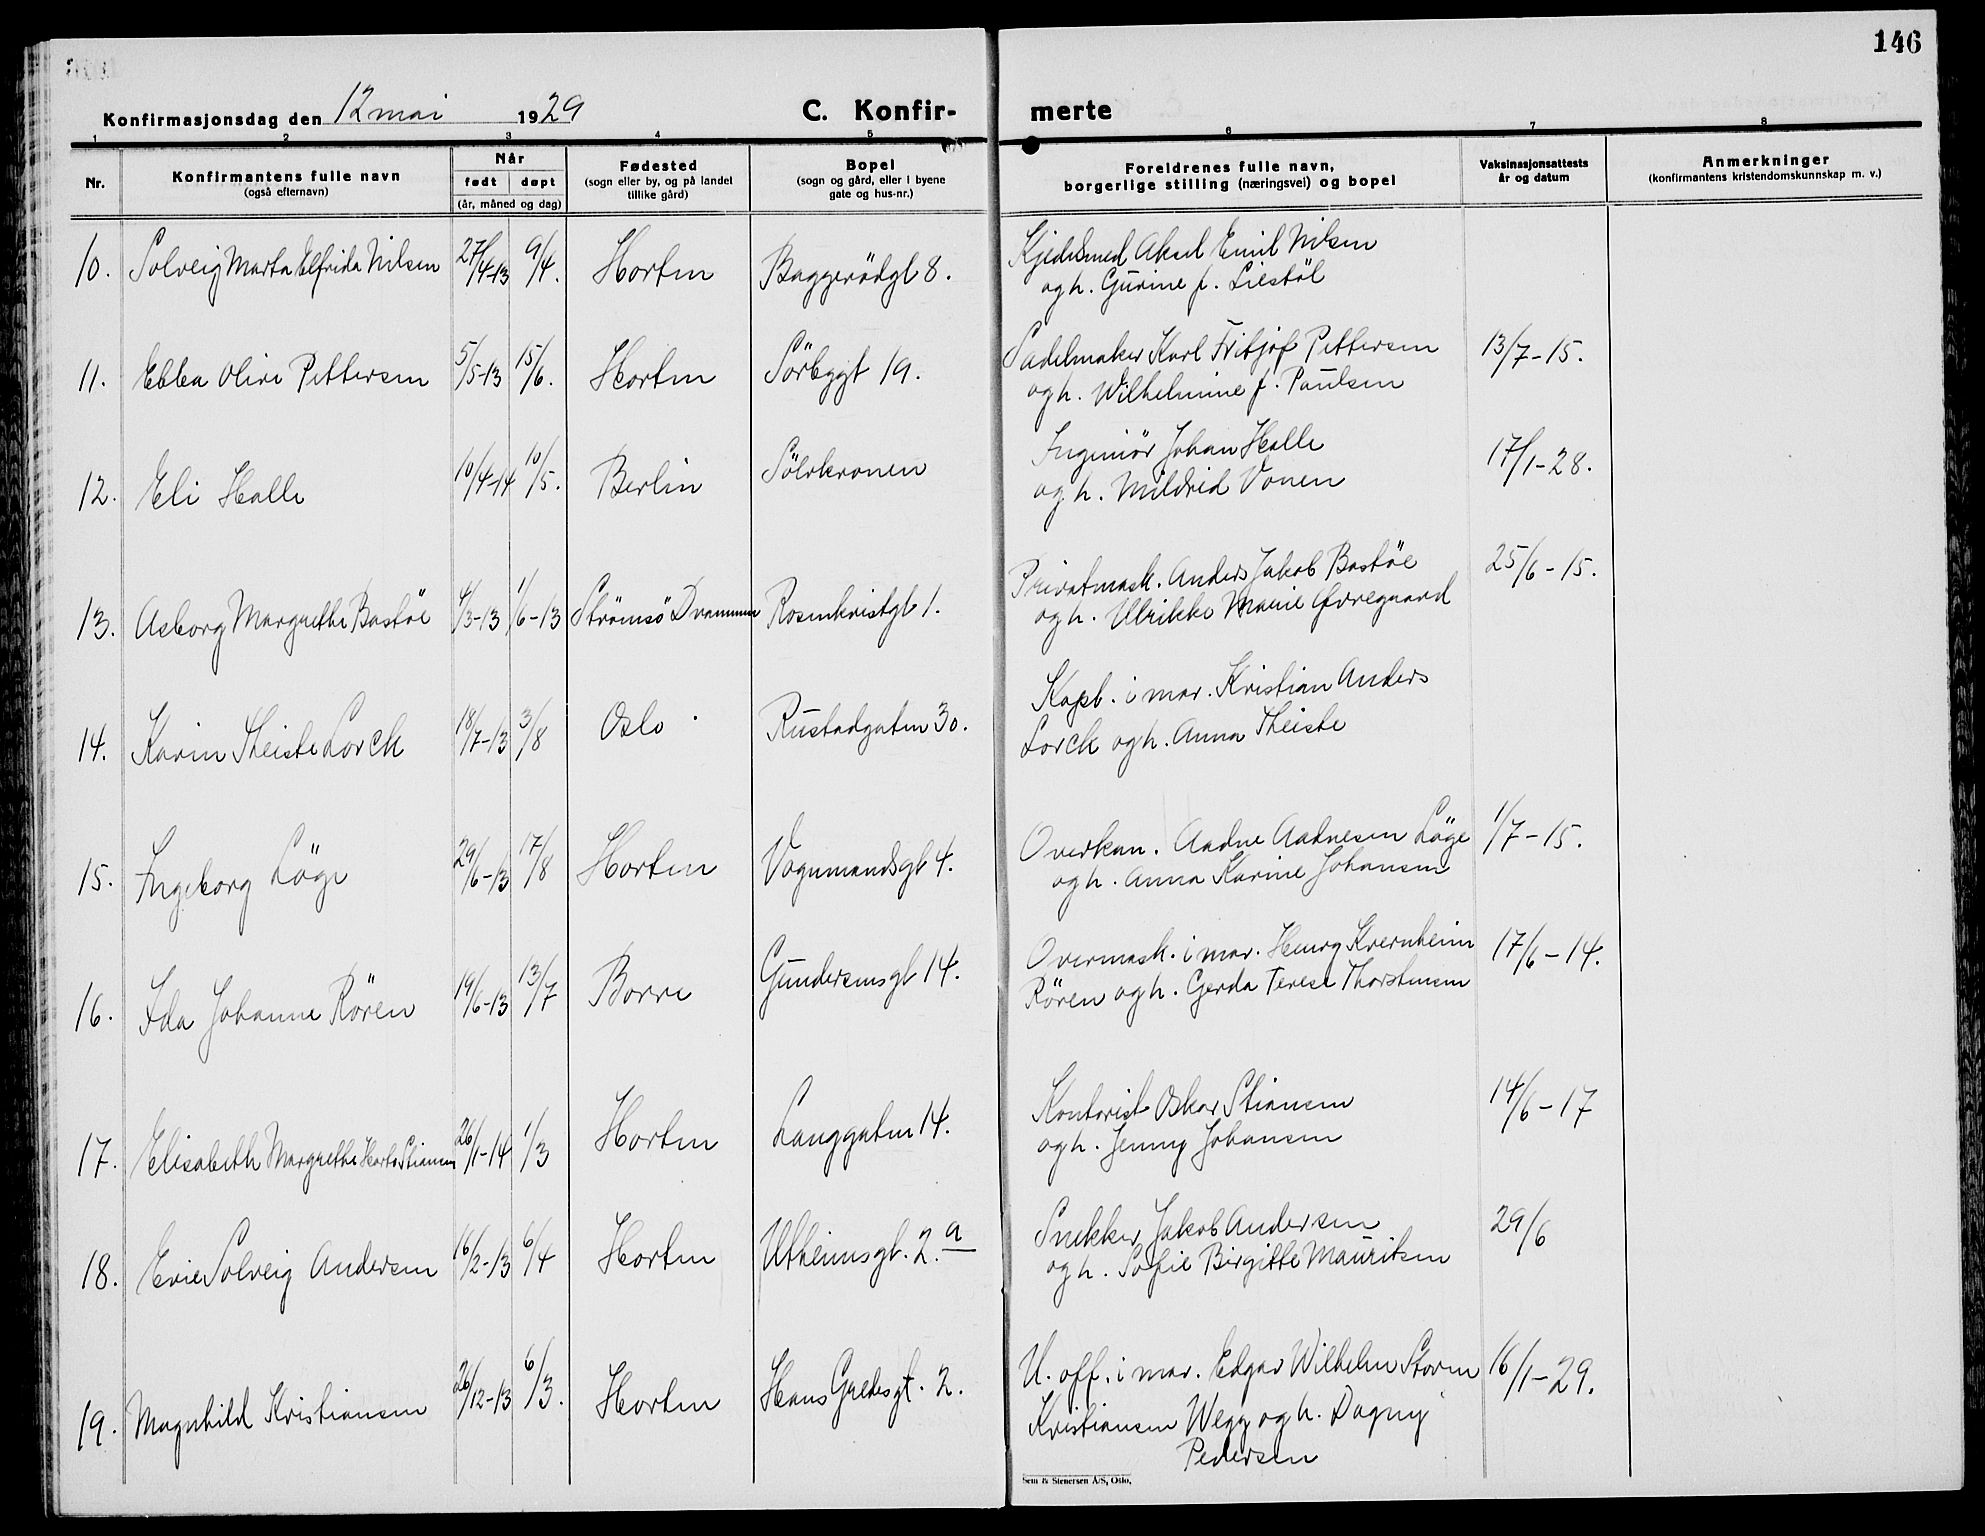 146
Konfirmasjonsdag den 12 mai 1929 C. Konfir- merte
1 2 3 4 5 6 7 8
Nr. Konfirmantens fulle navn (også efternavn) Når født døpt (år, måned og dag) Fødested (sogn eller by, og på landet tillike gård) Bopel (sogn og gård, eller i byene gate og hus-nr.) Foreldrenes fulle navn, borgerlige stilling (næringsvei) og bopel Vaksinasjonsattests år og datum Anmerkninger (konfirmantens kristendomskunnskap m. v.)
10. Solveig Marta Elfrida Nilsen 27/4-13 9/4. Horten Baggerødgt 8. Kjedelsmed Aksel Emil Nilsen
og h. Gurine f. Liestøl
11. Ebba Olive Pettersen 5/5-13 15/6. Horten Sörbygt 19. Sadelmaker Karl Fritjof Pettersen 13/7-15.
og h. Wilhelmine f. Paulsen
12. Eli Halle 10/4-14 10/5. Berlin Sölvkronen Ingeniør Johan Halle 17/1-28.
og h. Mildrid Vonen
13. Asborg Margrethe Bastöe 4/3-13 1/6-13 Strømsö Drammen Rosenkristgt 1. Privatmask. Anders Jakob Bastöe 25/6-15.
og h. Ulrikke Marie Øvregaard
14. Karin Theiste Lorck 18/7-13 3/8 Oslo Rustadgaten 30. Kapt. i mar. Kristian Anders
Lorck og h. Anna Theiste
15. Ingeborg Löge 29/6-13 17/8 Horten Vognmandsgt 4. Overkan. Aadne Aadnesen Löge 1/7-15.
og h. Anna Karine Johansen
16. Ida Johanne Rören 19/6-13 13/7 Borre Gundersensgt 14. Overmask. i mar. Henry Kvernheim 17/6-14.
Rören og h. Gerda Terese Thorstensen
17. Elisabeth Margrethe Stiansen 26/1-14 1/3 Horten Langgaten 14. Kontorist Oskar Stiansen 14/6-17
og h. Jenny Johansen
18. Evie Solveig Andersen 16/2-13 6/4 Horten Utheimsgt. 2.a Snekker Jakob Andersen 29/6
og h. Sofie Birgitte Mauritsen
19. Magnhild Kristiansen 26/12-13 6/3. Horten Hans Gredesgt. 2. U. off. i mar. Edgar Wilhelm Storm 16/1-29.
Kristiansen Wegg og h. Dagny
Pedersen
Sem & Stenersen A/S, Oslo.